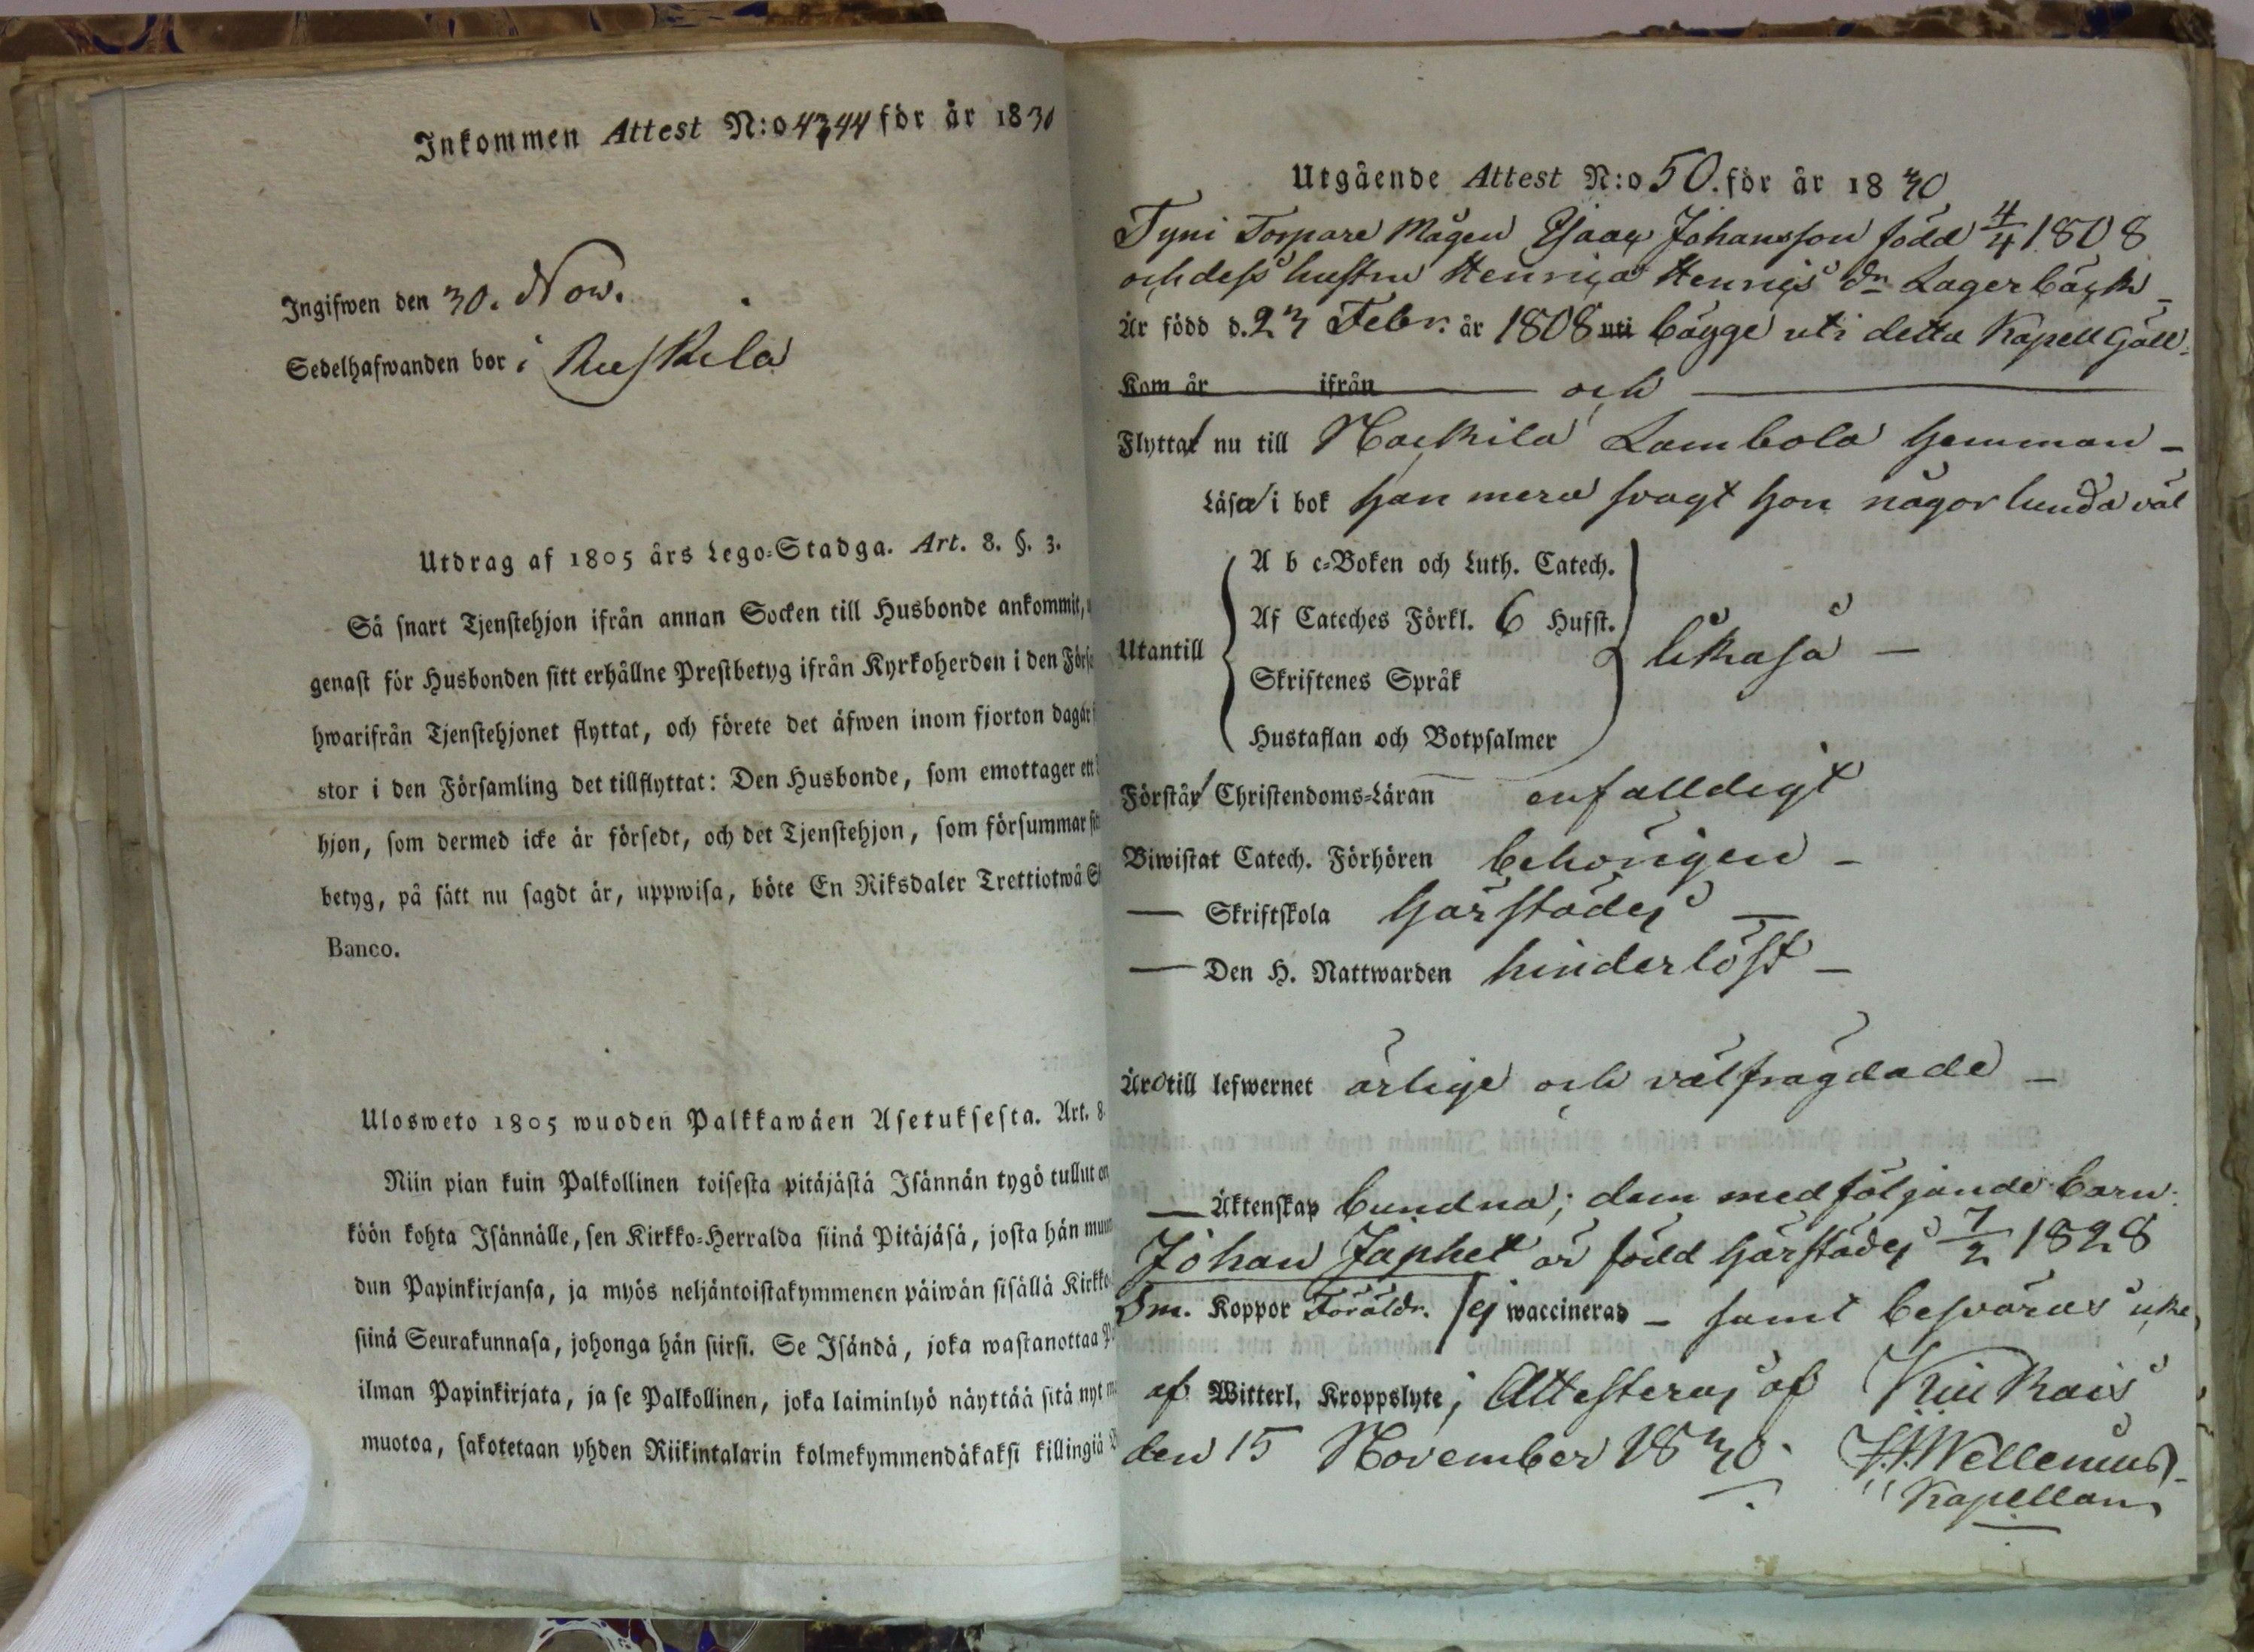 Inkommen Attest N:o 4344 för år 1830
Ingifwen den 30. Nov.
Sedelhafwanden bor i Ruskila
Utdrag af 1805 års Lego-Stadga. Art. 8. §. 3.
Så snart Tjenstehjon ifrån annan Socken till Husbonde ankommit,
genast för Husbonden sitt erhållne Prestbetyg ifrån Kyrkoherden i den Förse
hwarifrån Tjenstehjonet flyttat, och förete det äfwen inom fjorton dagar
stor i den Församling det tillflyttat: Den Husbonde, som emottager ett
hjon, som dermed icke är försedt, och det Tjenstehjon, som försummar
betyg, på sätt nu sagdt är, uppwisa, böte En Riksdaler Trettiotwå S
Banco.
Ulosweto 1805 wuoden Palkkawäen Asetuksesta. Art. 8.
Niin pian kuin Palkollinen toisesta pitäjästä Isännän tygö tullut on
köön kohta Isännälle, sen Kirkko-Herralda siinä Pitäjäsä, josta hän muut
dun Papinkirjansa, ja myös neljäntoistakymmenen päiwän sisällä Kirkko
siinä Seurakunnasa, johonga hän siirsi. Se Isändä, joka wastanottaa P
ilman Papinkirjata, ja se Palkollinen, joka laiminlyö näyttää sitä nyt
muotoa, sakotetaan yhden Riikintalarin kolmekymmendäkaksi killingiä
Utgående Attest N:o 50. för år 1830
Tyni Torpare Mågen Isaac Johansson född 4/4 1808
och dess hustru Henrica Henrics dr Lagerbäck
Är född d. 23 Febr. år 1808 uti bägge uti detta Kapell Gäll
Kom år ifrån och
Flyttat nu till Nackila Lambola hemman
Läser i bok han mera svagt hon någorlunda väl
A b c-Boken och Luth. Catech.
Af Cateches Förkl. 6 Hufst.
Utantill likaså
Skriftenes Språk
Hustaflan och Botpsalmer
Förstår Christendoms-Läran enfalldigt
Biwistat Catech. Förhören behörigen
— Skriftskola härstädes —
— Den H. Nattwarden hinderlöst —
Äro till lefwernet ärlige och välfrägdade —
— Äktenskap bundna; dem medföljande barn:
Johan Japhet är född härstädes 7/2 1828
Sm. Koppor Föräldr. ej waccinerad – samt besväras icke
af Witterl. Kroppslyte; Attesteras af Kiukais
den 15 November 1830. Wellenius
Kapellan